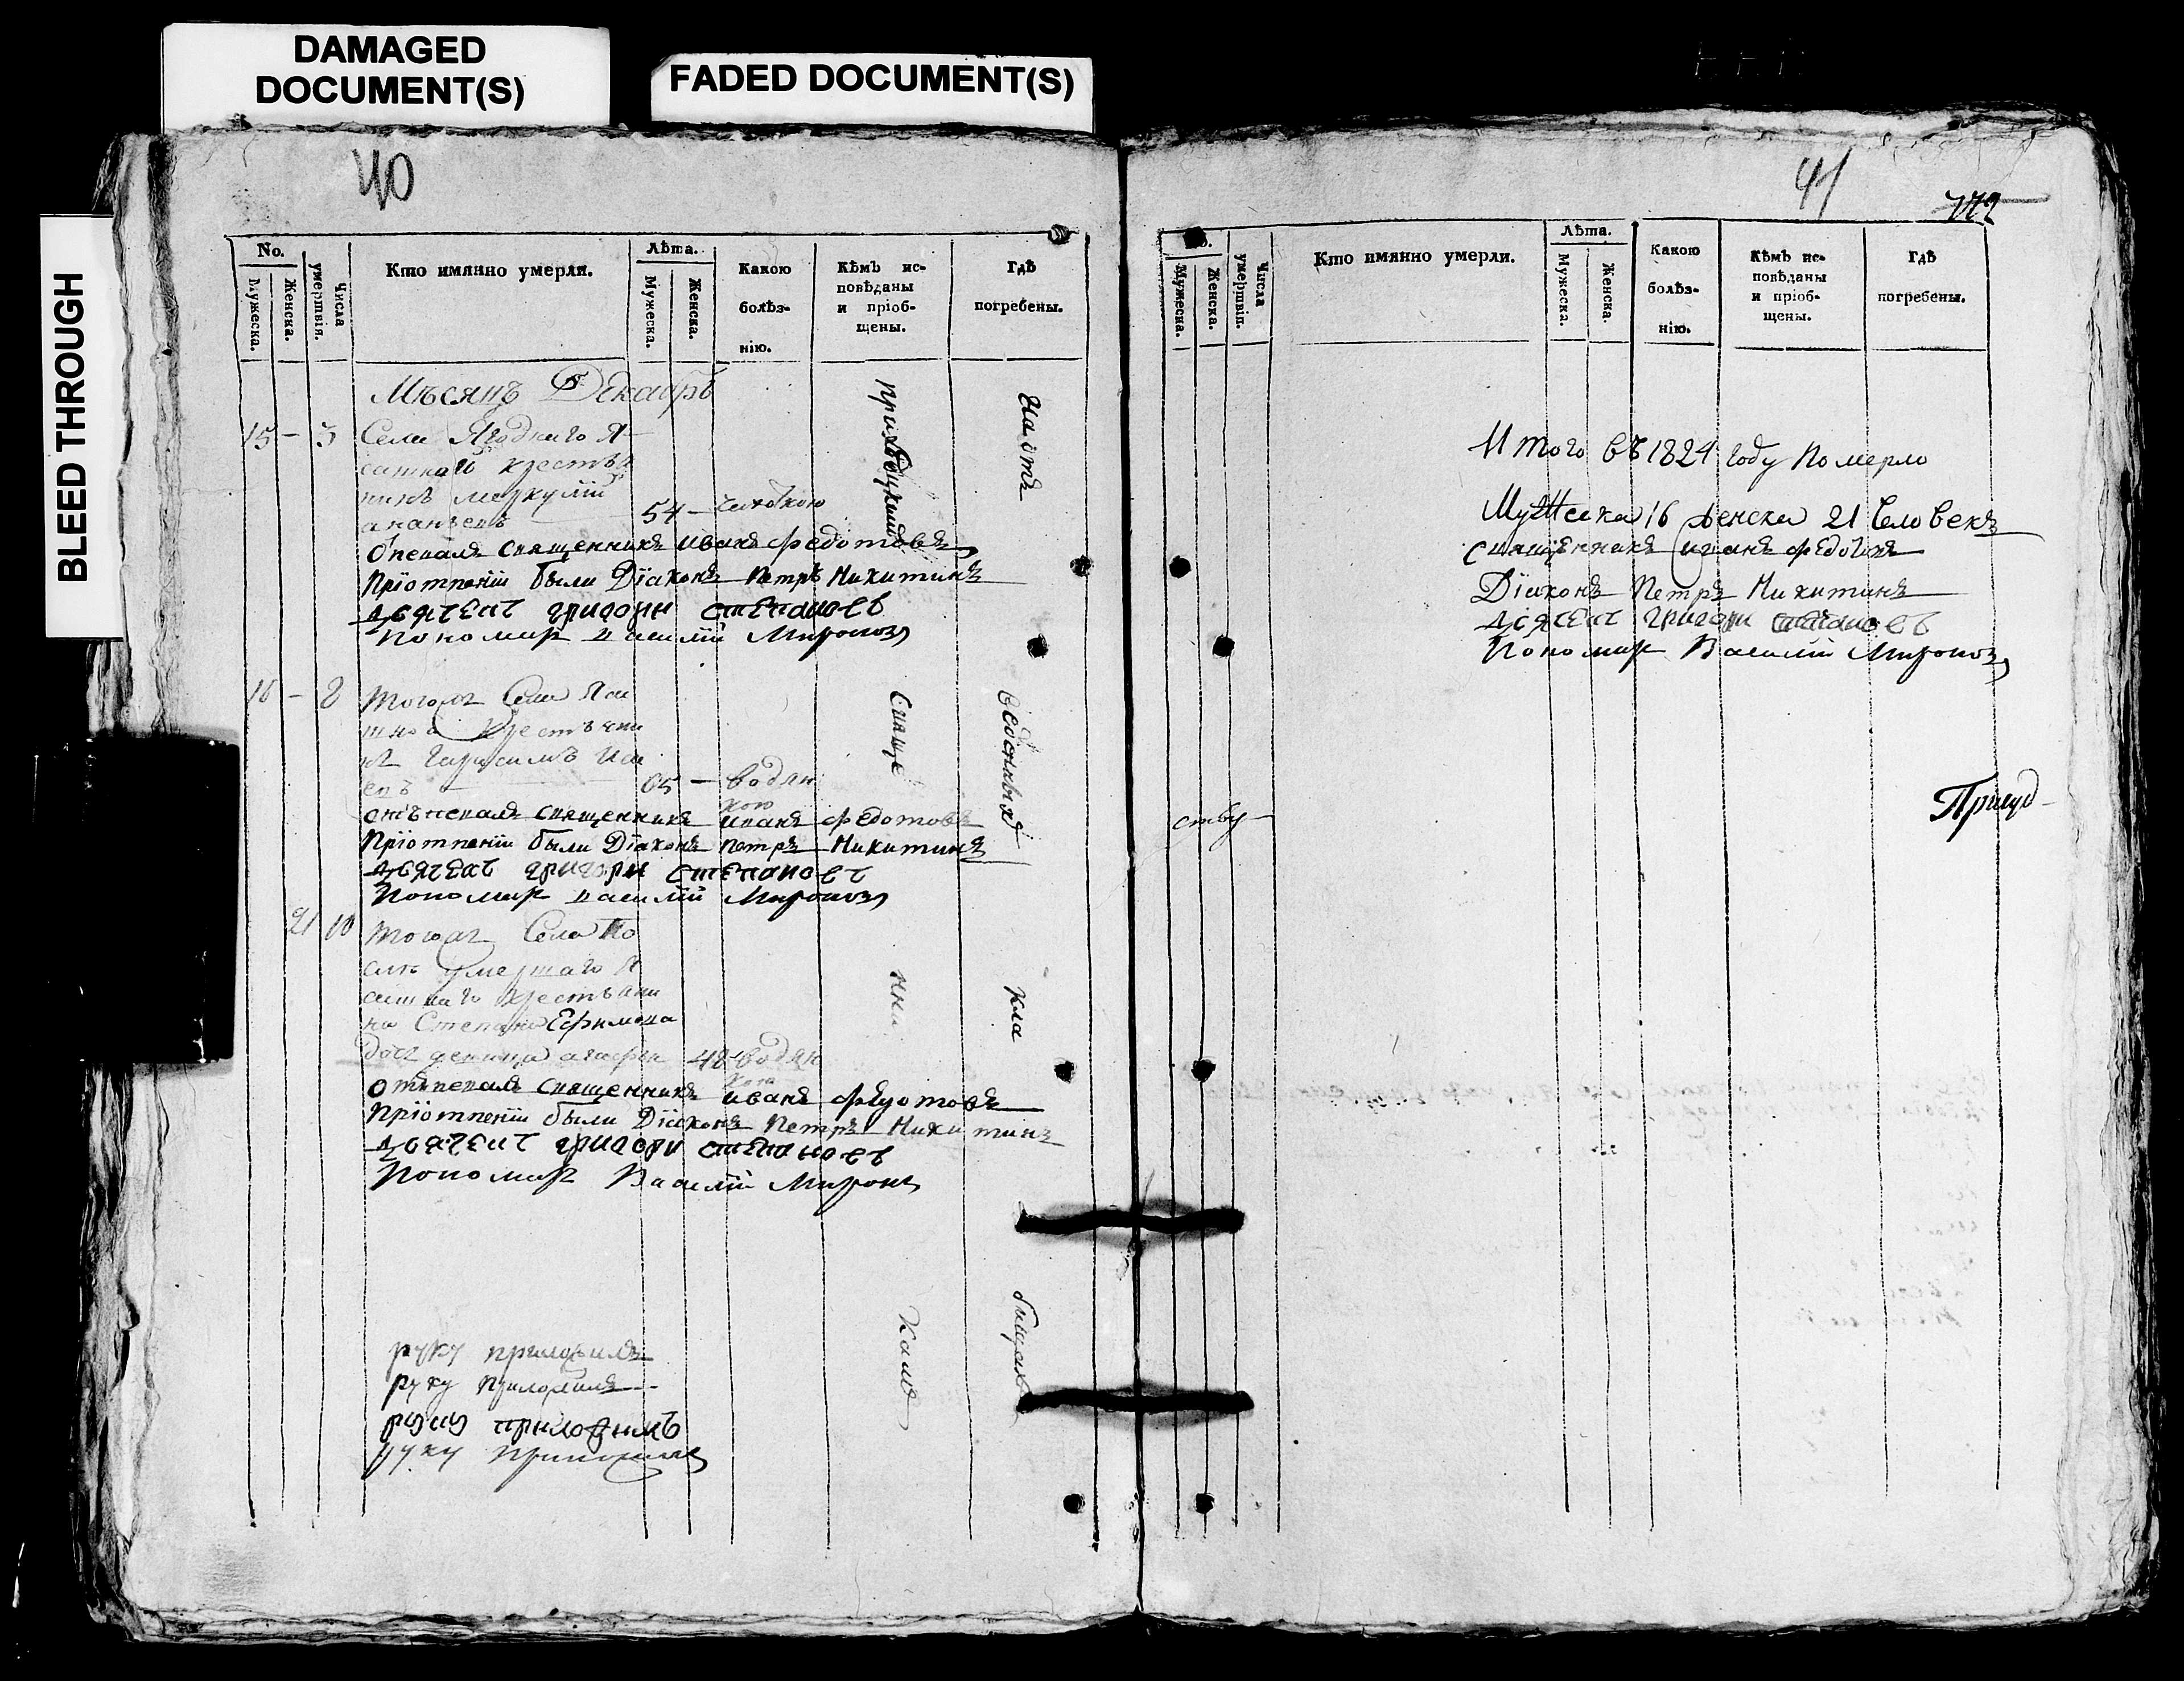 DAMAGED
DOCUMENT(S)
FADED DOCUMENT(S)
BLEED THROUGH
40
No.
Мужеска.
Женска.
Числа
умертвія.
Кто имянно умерли.
Лѣта.
Мужеска.
Женска.
Какою
болѣз-
нію.
Кѣмъ ис-
повѣданы
и пріоб-
щены.
Гдѣ
погребены.
Мѣсяцъ Декабрь
15 – 3 Села Ягоднаго Я-
сашнаго крестья
нинъ меркулій
54 – чахоткою
приходским
На отв
Отпевалъ священникъ иванъ федотовъ
Приотпетіи были Діаконъ Петръ Никитинъ
дьячекъ григори степановъ
Пономарь василій Мироновъ
16 – 8 тогожъ Села Яса
шной крестьяни
нъ Гарасимъ
65 – водян
кою
свяще
веденныхъ
отъпевалъ священникъ иванъ федотовъ
Приотпетіи были Діаконъ петръ Никитинъ
дьячекъ григори степановъ
Пономарь василій Мироновъ
21 10 тогожъ Села По
слѣ умершаго Я
сашнаго крестьяни
на Степана Ефимова
48 водян
кою
нни
кла
отпевалъ священникъ иванъ федотовъ
Приотпетіи были Діаконъ Петръ Никитинъ
дьячекъ григори степановъ
Пономарь Василій Мироновъ
комъ
бищахъ
руку приложилъ
руку приложилъ
руку приложилъ
руку приложилъ
41
No.
Мужеска.
Женска.
Числа
умертвіи.
Кто имянно умерли.
Лѣта.
Мужеска.
Женска.
Какою
болѣз-
нію.
Кѣмъ ис-
повѣданы
и пріоб-
щены.
Гдѣ
погребены.
Итого въ 1824 году Померло
Мужеска 16 женска 21 Человекъ
священникъ иванъ федотовъ
Діаконъ Петръ Никитинъ
дьячекъ григори степановъ
Пономарь Василій Мироновъ
ству